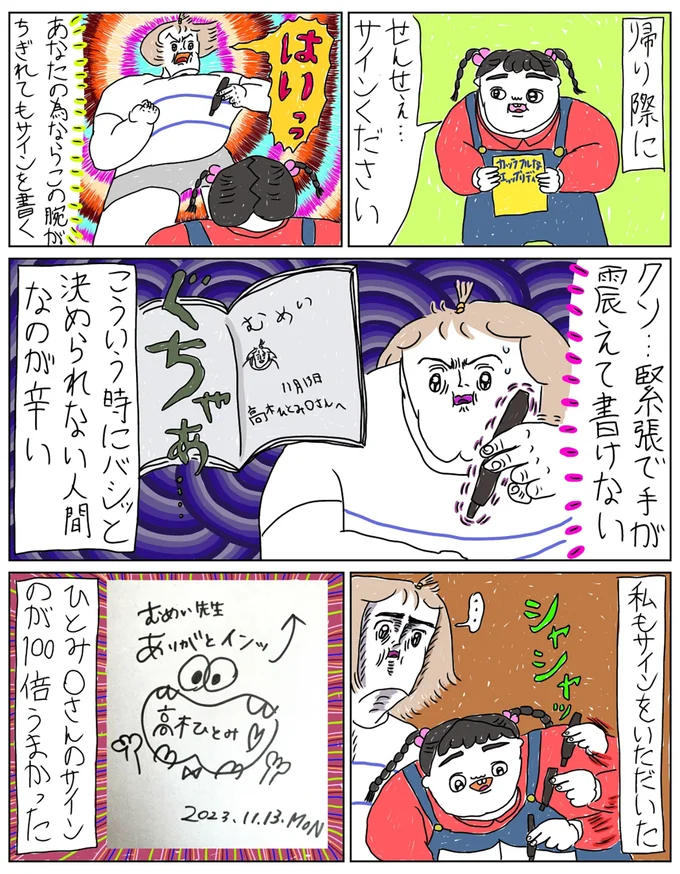 帰り際に
せんせぇ…
サインください
カップフルな
エッッボリデイ
はいっっ
あなたの為ならこの腕が
ちぎれてもサインを書く
クソ…緊張で手が
震えて書けない
むめい
11月13日
高木ひとみ〇さんへ
ぐちゃあ……
こういう時にバシッと
決められない人間
なのが辛い
私もサインをいただいた
シャシャッ
…
むめい先生
ありがとインッ
高木ひとみ
2023.11.13.MON
ひとみ〇さんのサイン
のが100倍うまかった